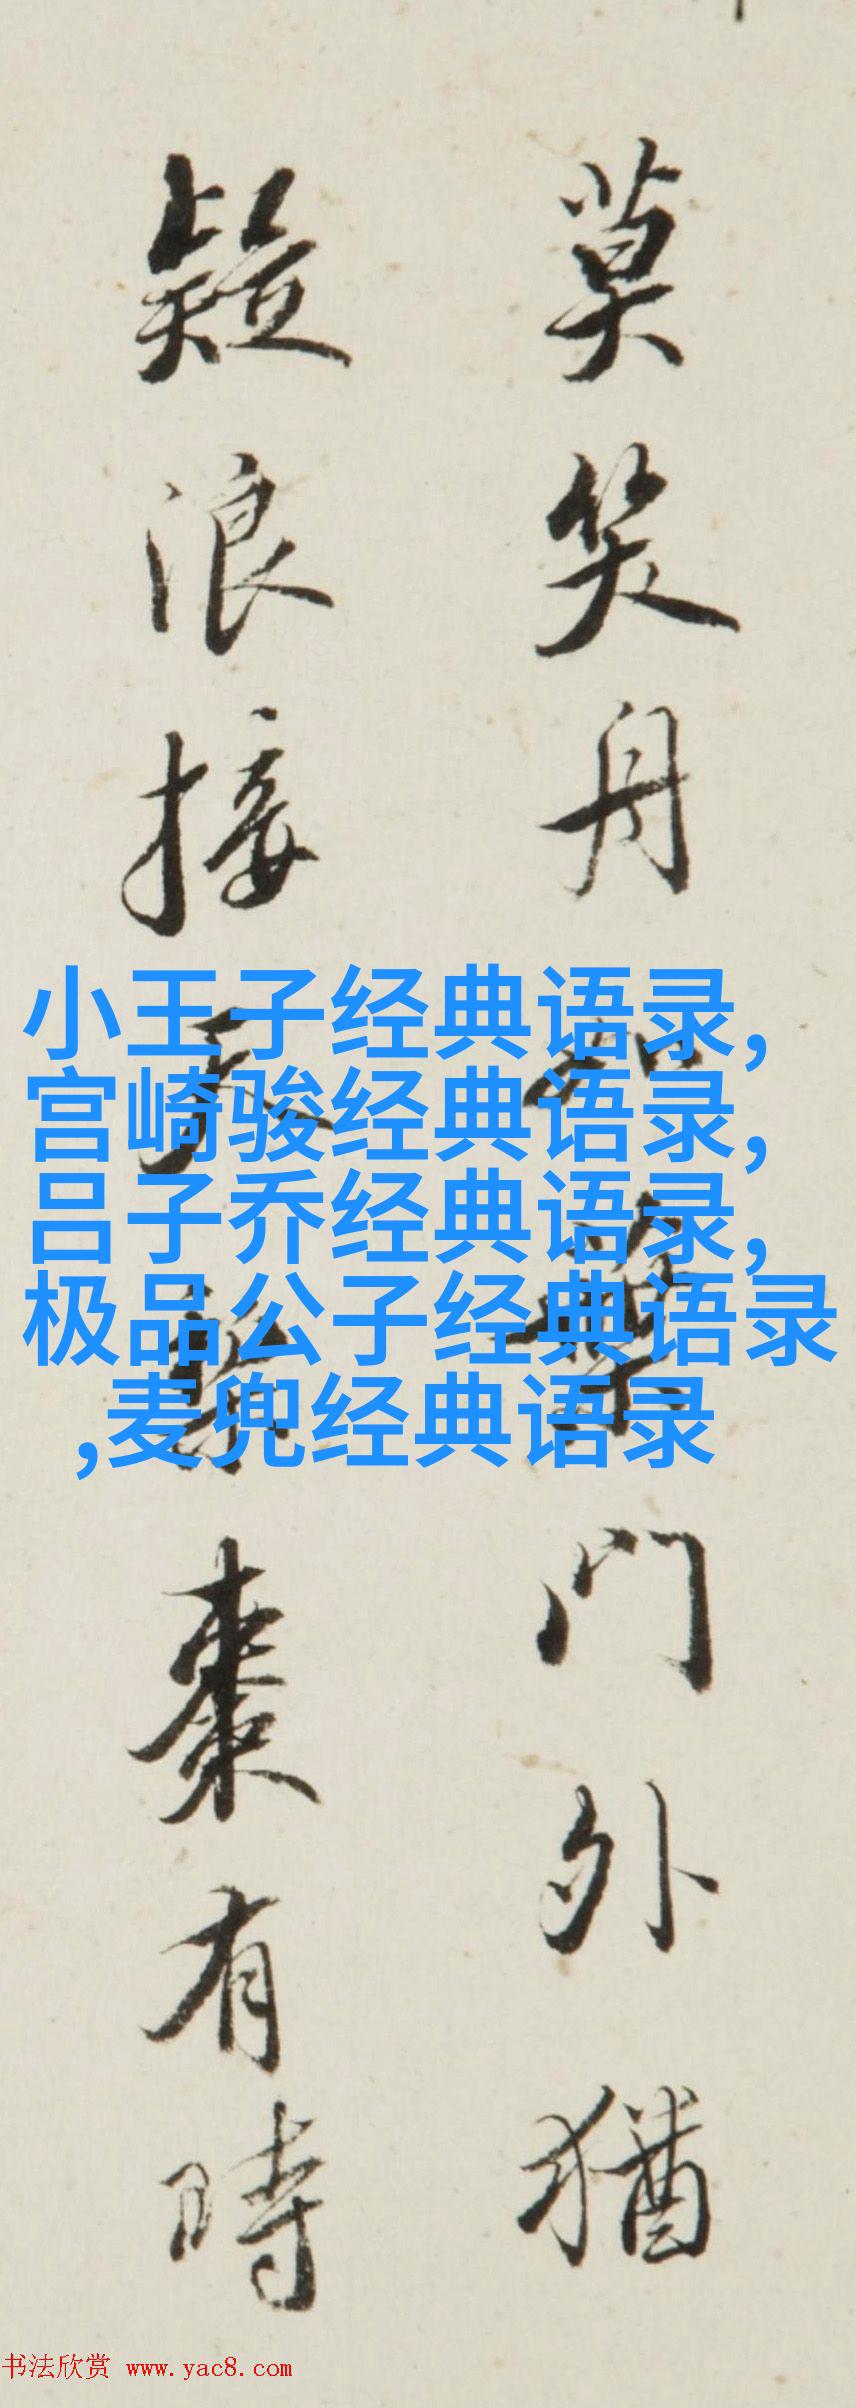 莫笑舟門外猶
疑浪接天棗有時
小王子经典语录,
宫崎骏经典语录,
吕子乔经典语录,
极品公子经典语录
,麦兜经典语录
书法欣赏 www.yac8.com